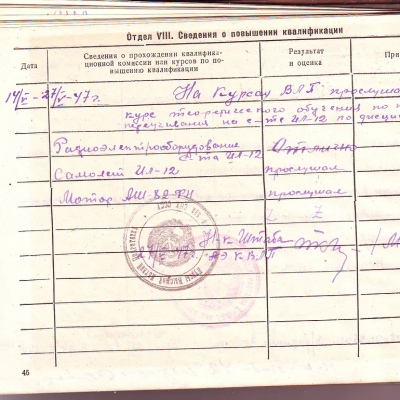 Отдел VIII. Сведения о повышении квалификации
Дата
Сведения о прохождении квалифика-
ционной комиссии или курсов по по-
вышению квалификации
Результат
и оценка
При
14/V-27/V-47г. На Курсах В.Л.П. прослушал
курс теоретического обучения по
переучивания на с-те ИЛ-12 по дисци
Радиоэлектрооборудование Отлично
с-та ИЛ-12
Самолет ИЛ-12 прослушал
Мотор АШ-82ФН прослушал
Z Z
Н-к Штаба
КВЛП
46